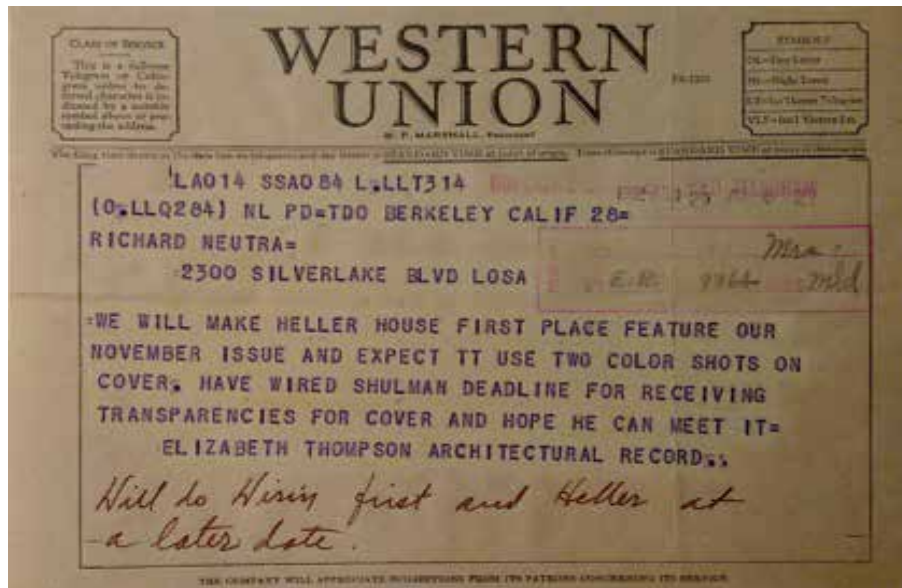 CLASS OF SERVICE
This is a full-rate
Telegram or Cable-
gram unless its de-
ferred character is in-
dicated by a suitable
symbol above or pre-
ceding the address.
WESTERN
UNION
W. P. MARSHALL, PRESIDENT
SYMBOLS
DL=Day Letter
NL=Night Letter
LT=Int'l Letter Telegram
VLT=Int'l Victory Ltr.
The filing time shown in the date line on telegrams and day letters is STANDARD TIME at point of origin. Time of receipt is STANDARD TIME at point of destination
LA014 SSA084 L.LLT314
(O.LLQ284) NL PD=TDO BERKELEY CALIF 28=
RICHARD NEUTRA=
2300 SILVERLAKE BLVD LOSA
Mrs
E.R.
=WE WILL MAKE HELLER HOUSE FIRST PLACE FEATURE OUR
NOVEMBER ISSUE AND EXPECT TT USE TWO COLOR SHOTS ON
COVER. HAVE WIRED SHULMAN DEADLINE FOR RECEIVING
TRANSPARENCIES FOR COVER AND HOPE HE CAN MEET IT=
ELIZABETH THOMPSON ARCHITECTURAL RECORD..
Will do Wirin first and Heller at
a later date.
THE COMPANY WILL APPRECIATE SUGGESTIONS FROM ITS PATRONS CONCERNING ITS SERVICE